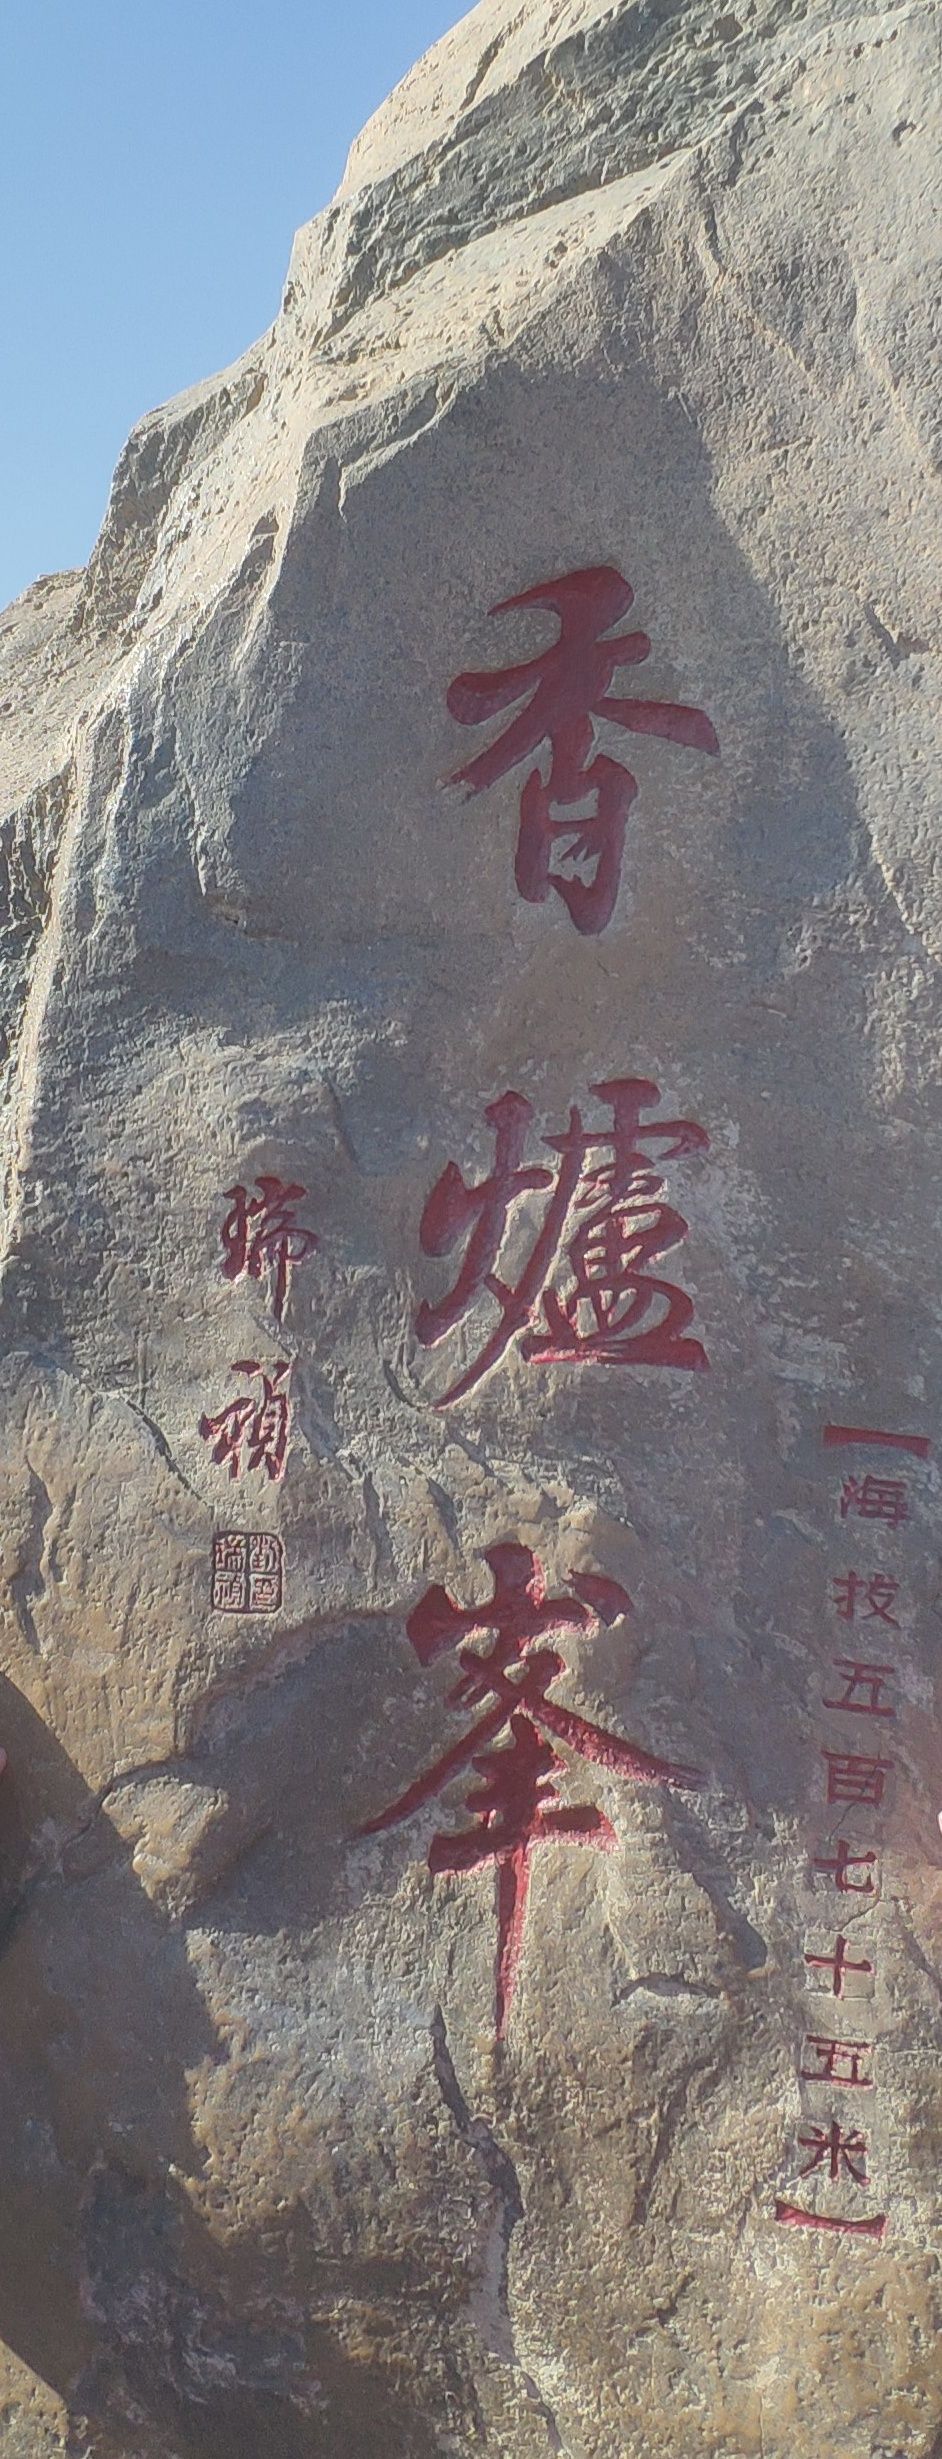 【海拔五百七十五米】
香爐峯
瑞禎